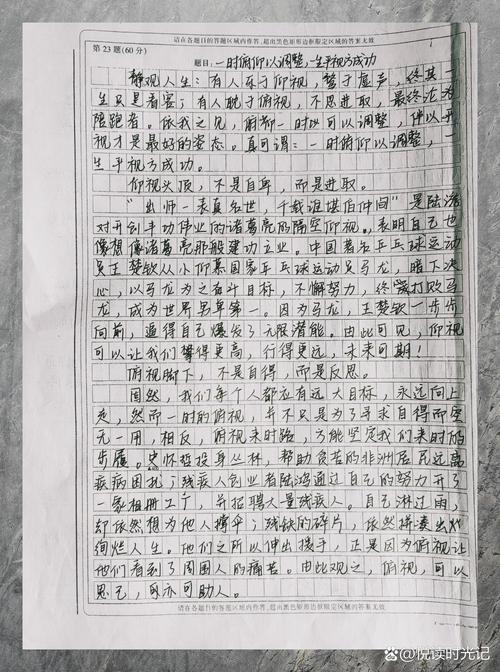 请在各题目的答题区域内作答，超出黑色矩形边框限定区域的答案无效
第23题(60分)
题目：一时俯仰以调整，一生平视方成功
静观人生：有人乐于仰视，誉于虚声，终其一
生只是看客；有人耽于俯视，不思进取，最终沦为
陪跑者。依我之见，俯仰一时以可以调整，伴以平
视才是最好的姿态。真可谓：一时俯仰以调整，一
生平视方成功。
仰视头顶，不是自卑，而是进取。
“出师一表真名世，千载谁堪伯仲间”是陆游
对开创丰功伟业的诸葛亮的隔空仰视。表明自己也
像想像诸葛亮那般建功立业。中国著名乒乓球运动
员王楚钦从小仰慕国家乒乓球运动员马龙，暗下决
心，以马龙为之奋斗目标，不懈努力，终赢打败马
龙，成为世界男单第一。因为马龙，王楚钦一步步
向前，逼得自己爆发了无限潜能。由此可见，仰视
可以让我们攀得更高，行得更远，未来可期！
俯视脚下，不是自得，而是反思。
固然，我们每个人都应有远大目标，永远向上
走，然而一时的俯视，并不只是为了寻求自得而空
无一用，相反，俯视来时路，方能坚定我们来时的
步履。怀哲投身丛林，帮助贫苦的非洲居民远离
疾病困扰；残疾人创业者陆鸿通过自己的努力开了
一家相册工厂，并招聘大量残疾人。自己淋过雨，
却依然想为他人撑伞；残缺的碎片，依然拼凑出
绚烂人生。他们之所以伸出援手，正是因为俯视让
他们看到了周围人的痛苦。由此观之，俯视，可以
思己，亦可助人。
请在各题目的答题区域内作答，超出黑色矩形边框限定区域的答案无效
悦读时光记